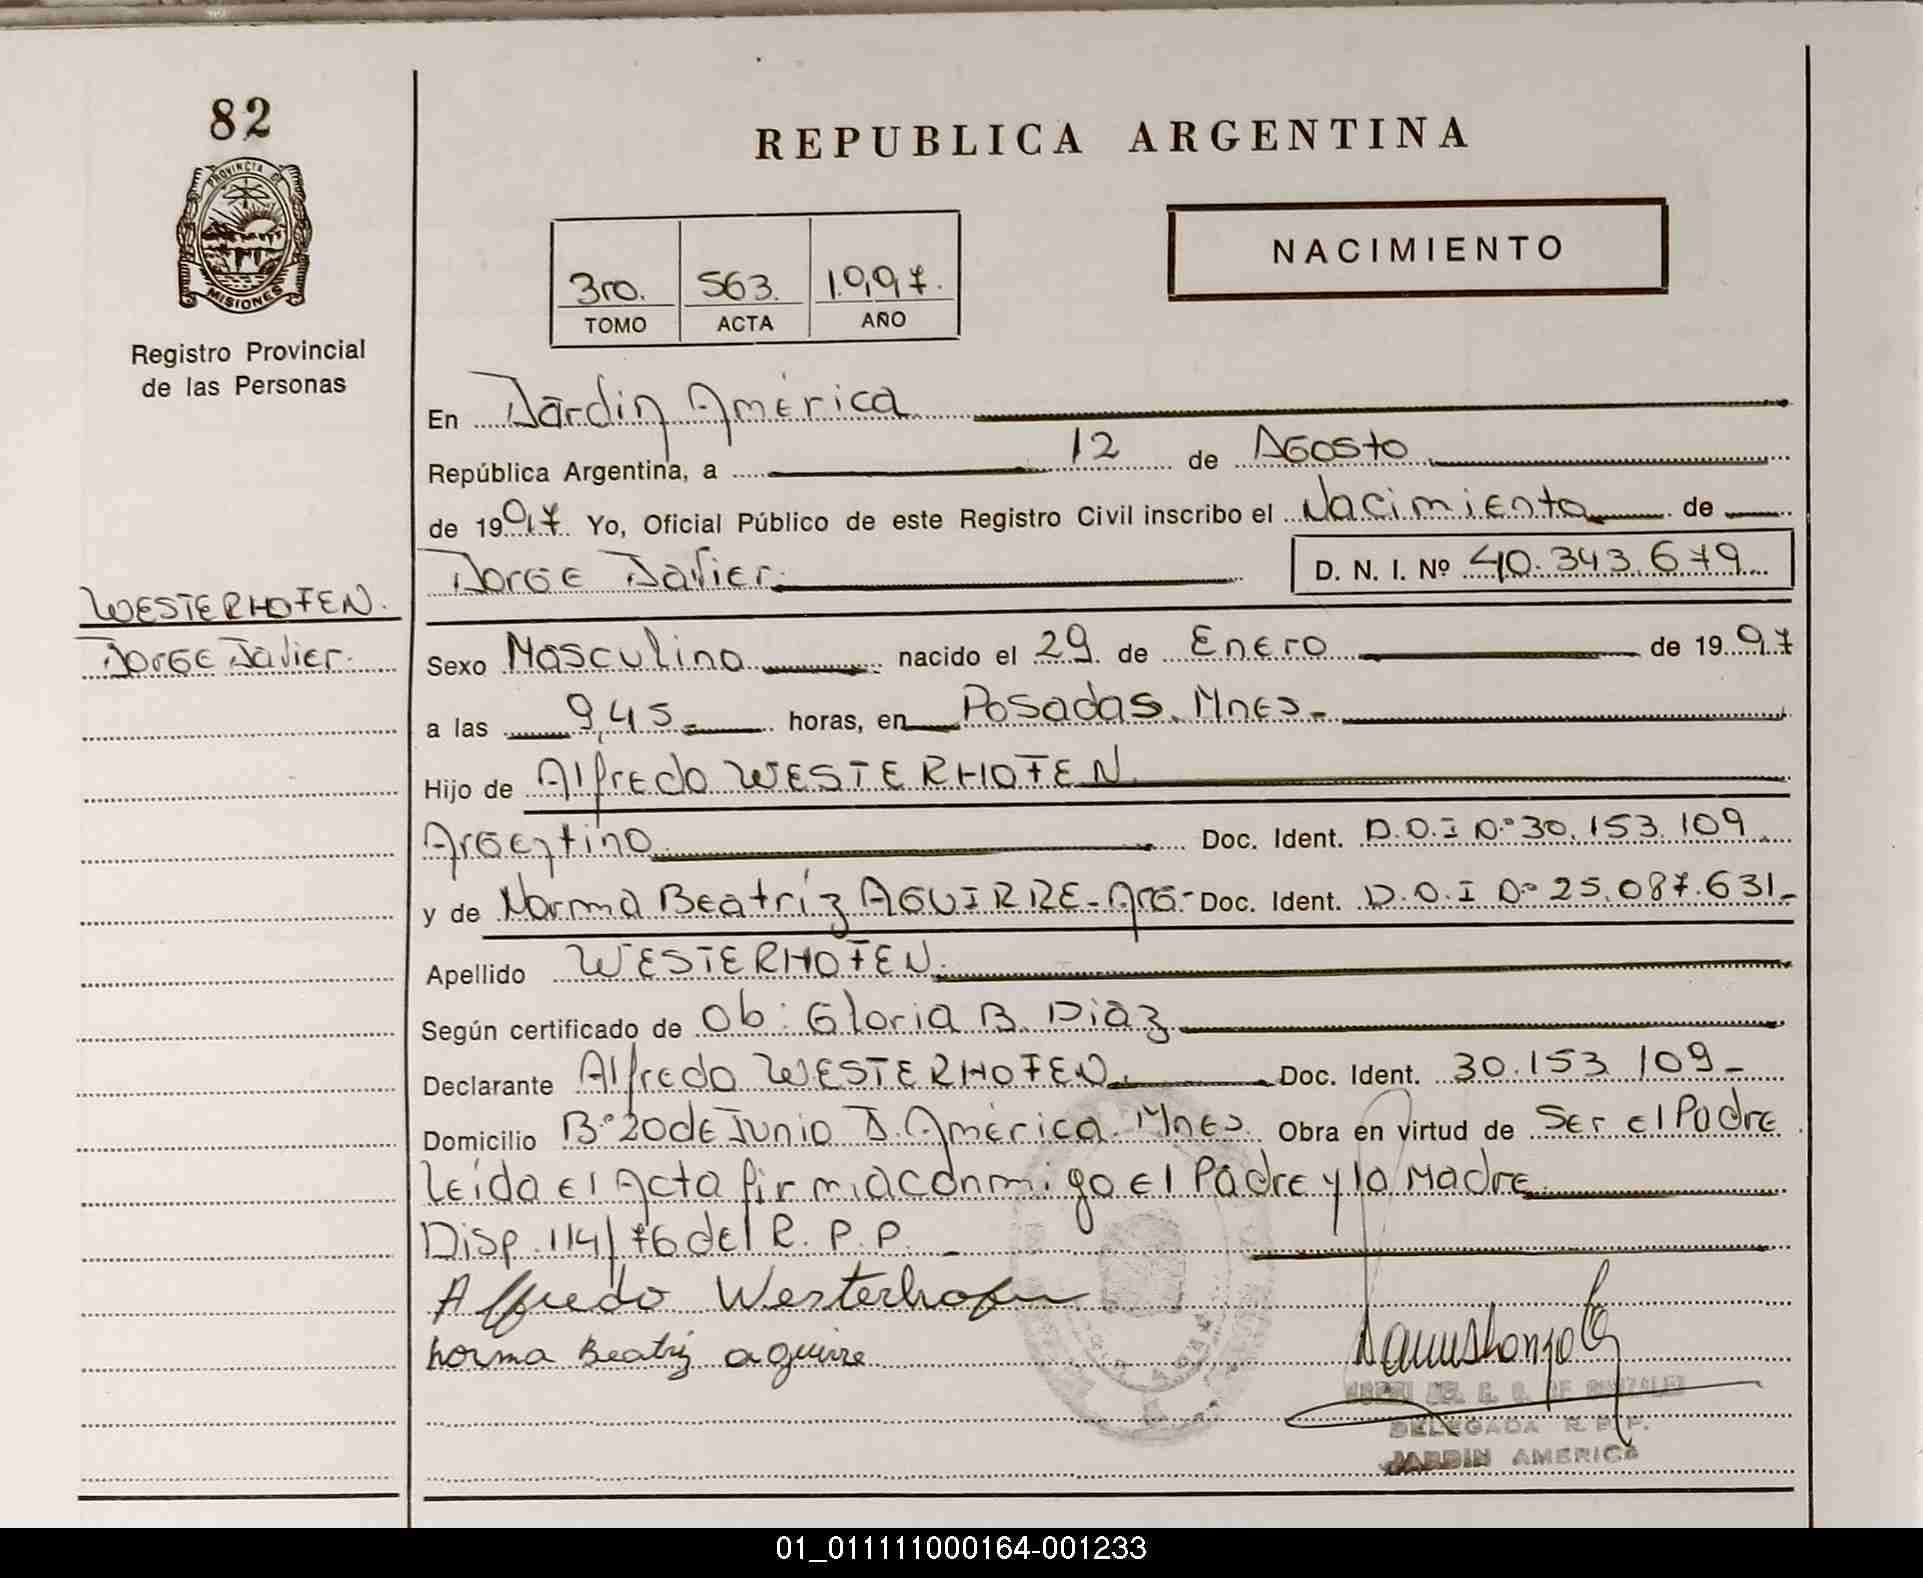 82
PROVINCIA DE
MISIONES
Registro Provincial
de las Personas
WESTERHOFEN.
Jorge Javier.
REPUBLICA ARGENTINA
NACIMIENTO
3ro. 563. 1.997.
TOMO ACTA AÑO
En Jardín América
República Argentina, a 12 de Agosto
de 1997. Yo, Oficial Público de este Registro Civil inscribo el Nacimiento de
Jorge Javier. D. N. I. Nº 40.343.679
Sexo Masculino nacido el 29 de Enero de 1997
a las 9,45 horas, en Posadas. Mnes-
Hijo de Alfredo WESTERHOFEN.
Argentino Doc. Ident. D.N.I Nº 30.153.109
y de Norma Beatríz AGUIRRE-Arg- Doc. Ident. D.N.I Nº 25.087.631-
Apellido WESTERHOFEN.
Según certificado de Ob: Gloria B. Diaz
Declarante Alfredo WESTERHOFEN. Doc. Ident. 30.153.109-
Domicilio Bº 20 de Junio J. América. Mnes. Obra en virtud de Ser el Padre
Leída el Acta firma conmigo el Padre y la Madre
Disp. 114/76 del R. P. P.
Alfredo Westerhofen
norma Beatriz aguirre
DELEGADA R. P. P.
JARDIN AMERICA
01_011111000164-001233